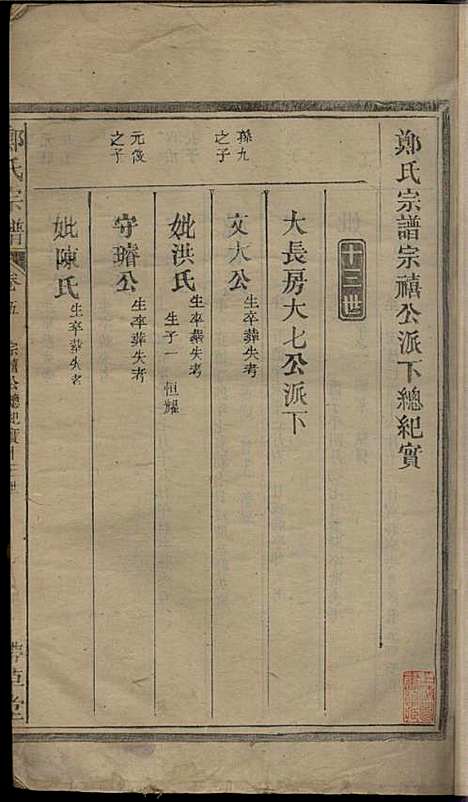 鄭氏宗譜宗禧公派下總紀實
十三世
大長房大七公派下
孫九
之子
文大公
生卒葬失考
妣洪氏
生卒葬失考
生子一 恒耀
元俊
之子
守璿公
生卒葬失考
妣陳氏
生卒葬失考
鄭氏宗譜 卷五 宗禧公總紀實